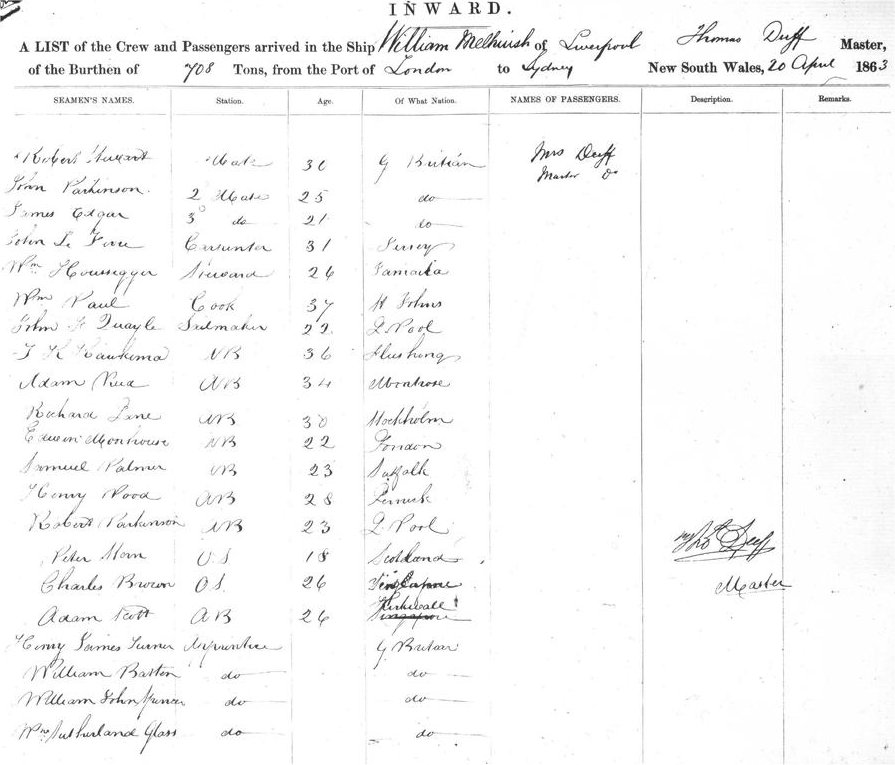 INWARD.
A LIST of the Crew and Passengers arrived in the Ship William Melhuish of Liverpool Thomas Duff Master,
of the Burthen of 708 Tons, from the Port of London to Sydney New South Wales, 20 April 1863
SEAMEN'S NAMES. Station. Age. Of What Nation. NAMES OF PASSENGERS. Description. Remarks.
Robert Stewart Mate 30 G Britian Mrs Duff
Master Do
John Parkinson. 2 Mate 25 do
James Edgar 3 do 21 do
John Le Carpenter 31 Jersey
Wm Steward 26 Jamaica
Wm Paul Cook 37 St Johns
John Quayle Sailmaker 22 L Pool
AB 36 Flushing
Adam Reid AB 34 Montrose
Richard Lane AB 30 Stockholm
Edwin Monkhouse AB 22 London
Samuel Palmer AB 23 Suffolk
Henry Wood AB 28
Robert Parkinson AB 23 L Pool
Thos Duff
Peter O.S 18 Scotland
Charles Brown OS. 26 Singapore Master
Adam Scott AB 26 Kirkcall
Singapore
Henry James Turner Apprentice G Britain
William Barton do do
William John do do
Wm Sutherland Glass do do